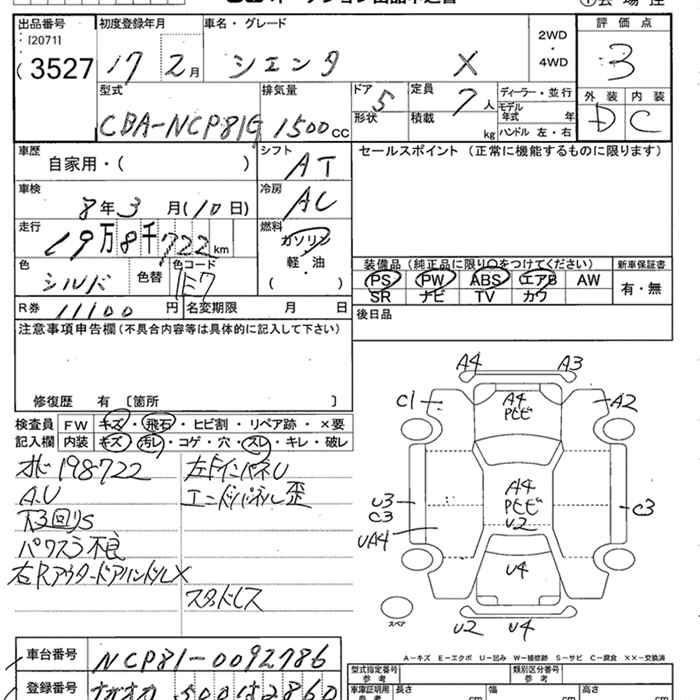 オークション出品申込書
出品番号 初度登録年月 車名・グレード 評価点
I20711
3527 17 2月 シエンタ X 2WD・4WD 3
型式 排気量 ドア 定員 ディーラー・並行 外装 内装
CBA-NCP81G 1500cc 5 7人 モデル年式 年 D C
形状 積載 kg ハンドル 左・右
車歴 シフト セールスポイント (正常に機能するものに限ります)
自家用・( ) AT
車検 冷房
8年3月(10日) AC
走行 燃料
19万8千722km ガソリン・軽・油
( )
色 色替 色コード
シルバー 1E7
装備品(純正品に限り○をつけてください) 新車保証書
PS PW ABS エアB AW 有・無
SR ナビ TV カワ
R券 11100円 名変期限 月 日
後日品
注意事項申告欄(不具合内容等は具体的に記入して下さい)
修復歴 有 〔箇所 〕
検査員 FW キズ・飛石・ヒビ割・リペア跡・×要
記入欄 内装 キズ・汚レ・コゲ・穴・スレ・キレ・破レ
198722 左
A.U
S
パワスラ不良
右Rアウタードアハンドル X
スタッドレス
A4 A3
C1 A4 A2
U3 A4 C3
C3 U2
UA4
U4
スペア
U2 U4
A-キズ E-エクボ U-凹み W-補修跡 S-サビ C-腐食 XX-交換済
車台番号 NCP81-0092786
型式指定番号 類別区分番号
参考
登録番号 500 は 2860
車庫証明用 長さ 幅 高さ
参考 cm cm cm